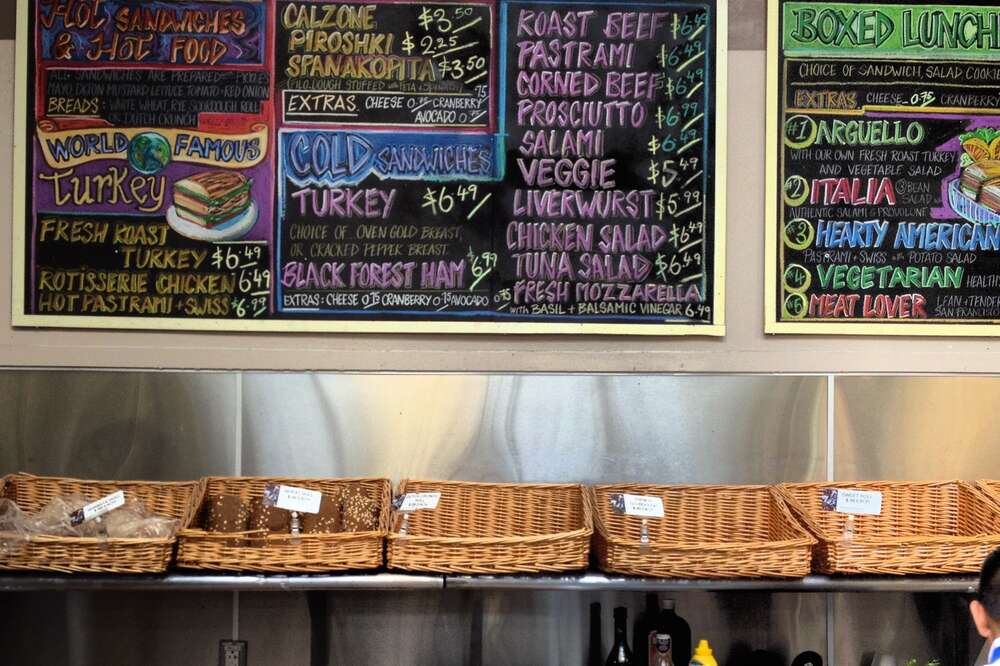 Hot Sandwiches
& Hot Food
ALL SANDWICHES ARE PREPARED PICKLES
MAYO DIJON MUSTARD LETTUCE TOMATO RED ONION
BREADS: WHITE WHEAT RYE SOURDOUGH ROLL
OR DUTCH CRUNCH
WORLD FAMOUS
Turkey
FRESH ROAST
TURKEY $6.49
ROTISSERIE CHICKEN 6.49
HOT PASTRAMI + SWISS $6.99
CALZONE $3.50
PIROSHKI $2.25
SPANAKOPITA $3.50
FILO DOUGH STUFFED WITH FETA + SPINACH
EXTRAS. CHEESE 0.75 CRANBERRY .75
AVOCADO 0.75
COLD SANDWICHES
TURKEY $6.49
CHOICE OF OVEN GOLD BREAST,
OR, CRACKED PEPPER BREAST.
BLACK FOREST HAM $6.99
EXTRAS: CHEESE 0.75 CRANBERRY 0.75 AVOCADO 0.75
ROAST BEEF $6.49
PASTRAMI $6.49
CORNED BEEF $6.49
PROSCIUTTO $6.99
SALAMI $6.49
VEGGIE $5.49
LIVERWURST $5.99
CHICKEN SALAD $6.49
TUNA SALAD $6.49
FRESH MOZZARELLA
WITH BASIL + BALSAMIC VINEGAR 6.49
BOXED LUNCH
CHOICE OF SANDWICH, SALAD COOKIE
EXTRAS CHEESE 0.75 CRANBERRY
#1 ARGUELLO
WITH OUR OWN FRESH ROAST TURKEY
AND VEGETABLE SALAD
#2 ITALIA 3 BEAN
SALAD W/
AUTHENTIC SALAMI & PROVOLONE
#3 HEARTY AMERICAN
PASTRAMI + SWISS W/ POTATO SALAD
#4 VEGETARIAN HEALTHY
#5 MEAT LOVER LEAN + TENDER
SAN FRANCISCO